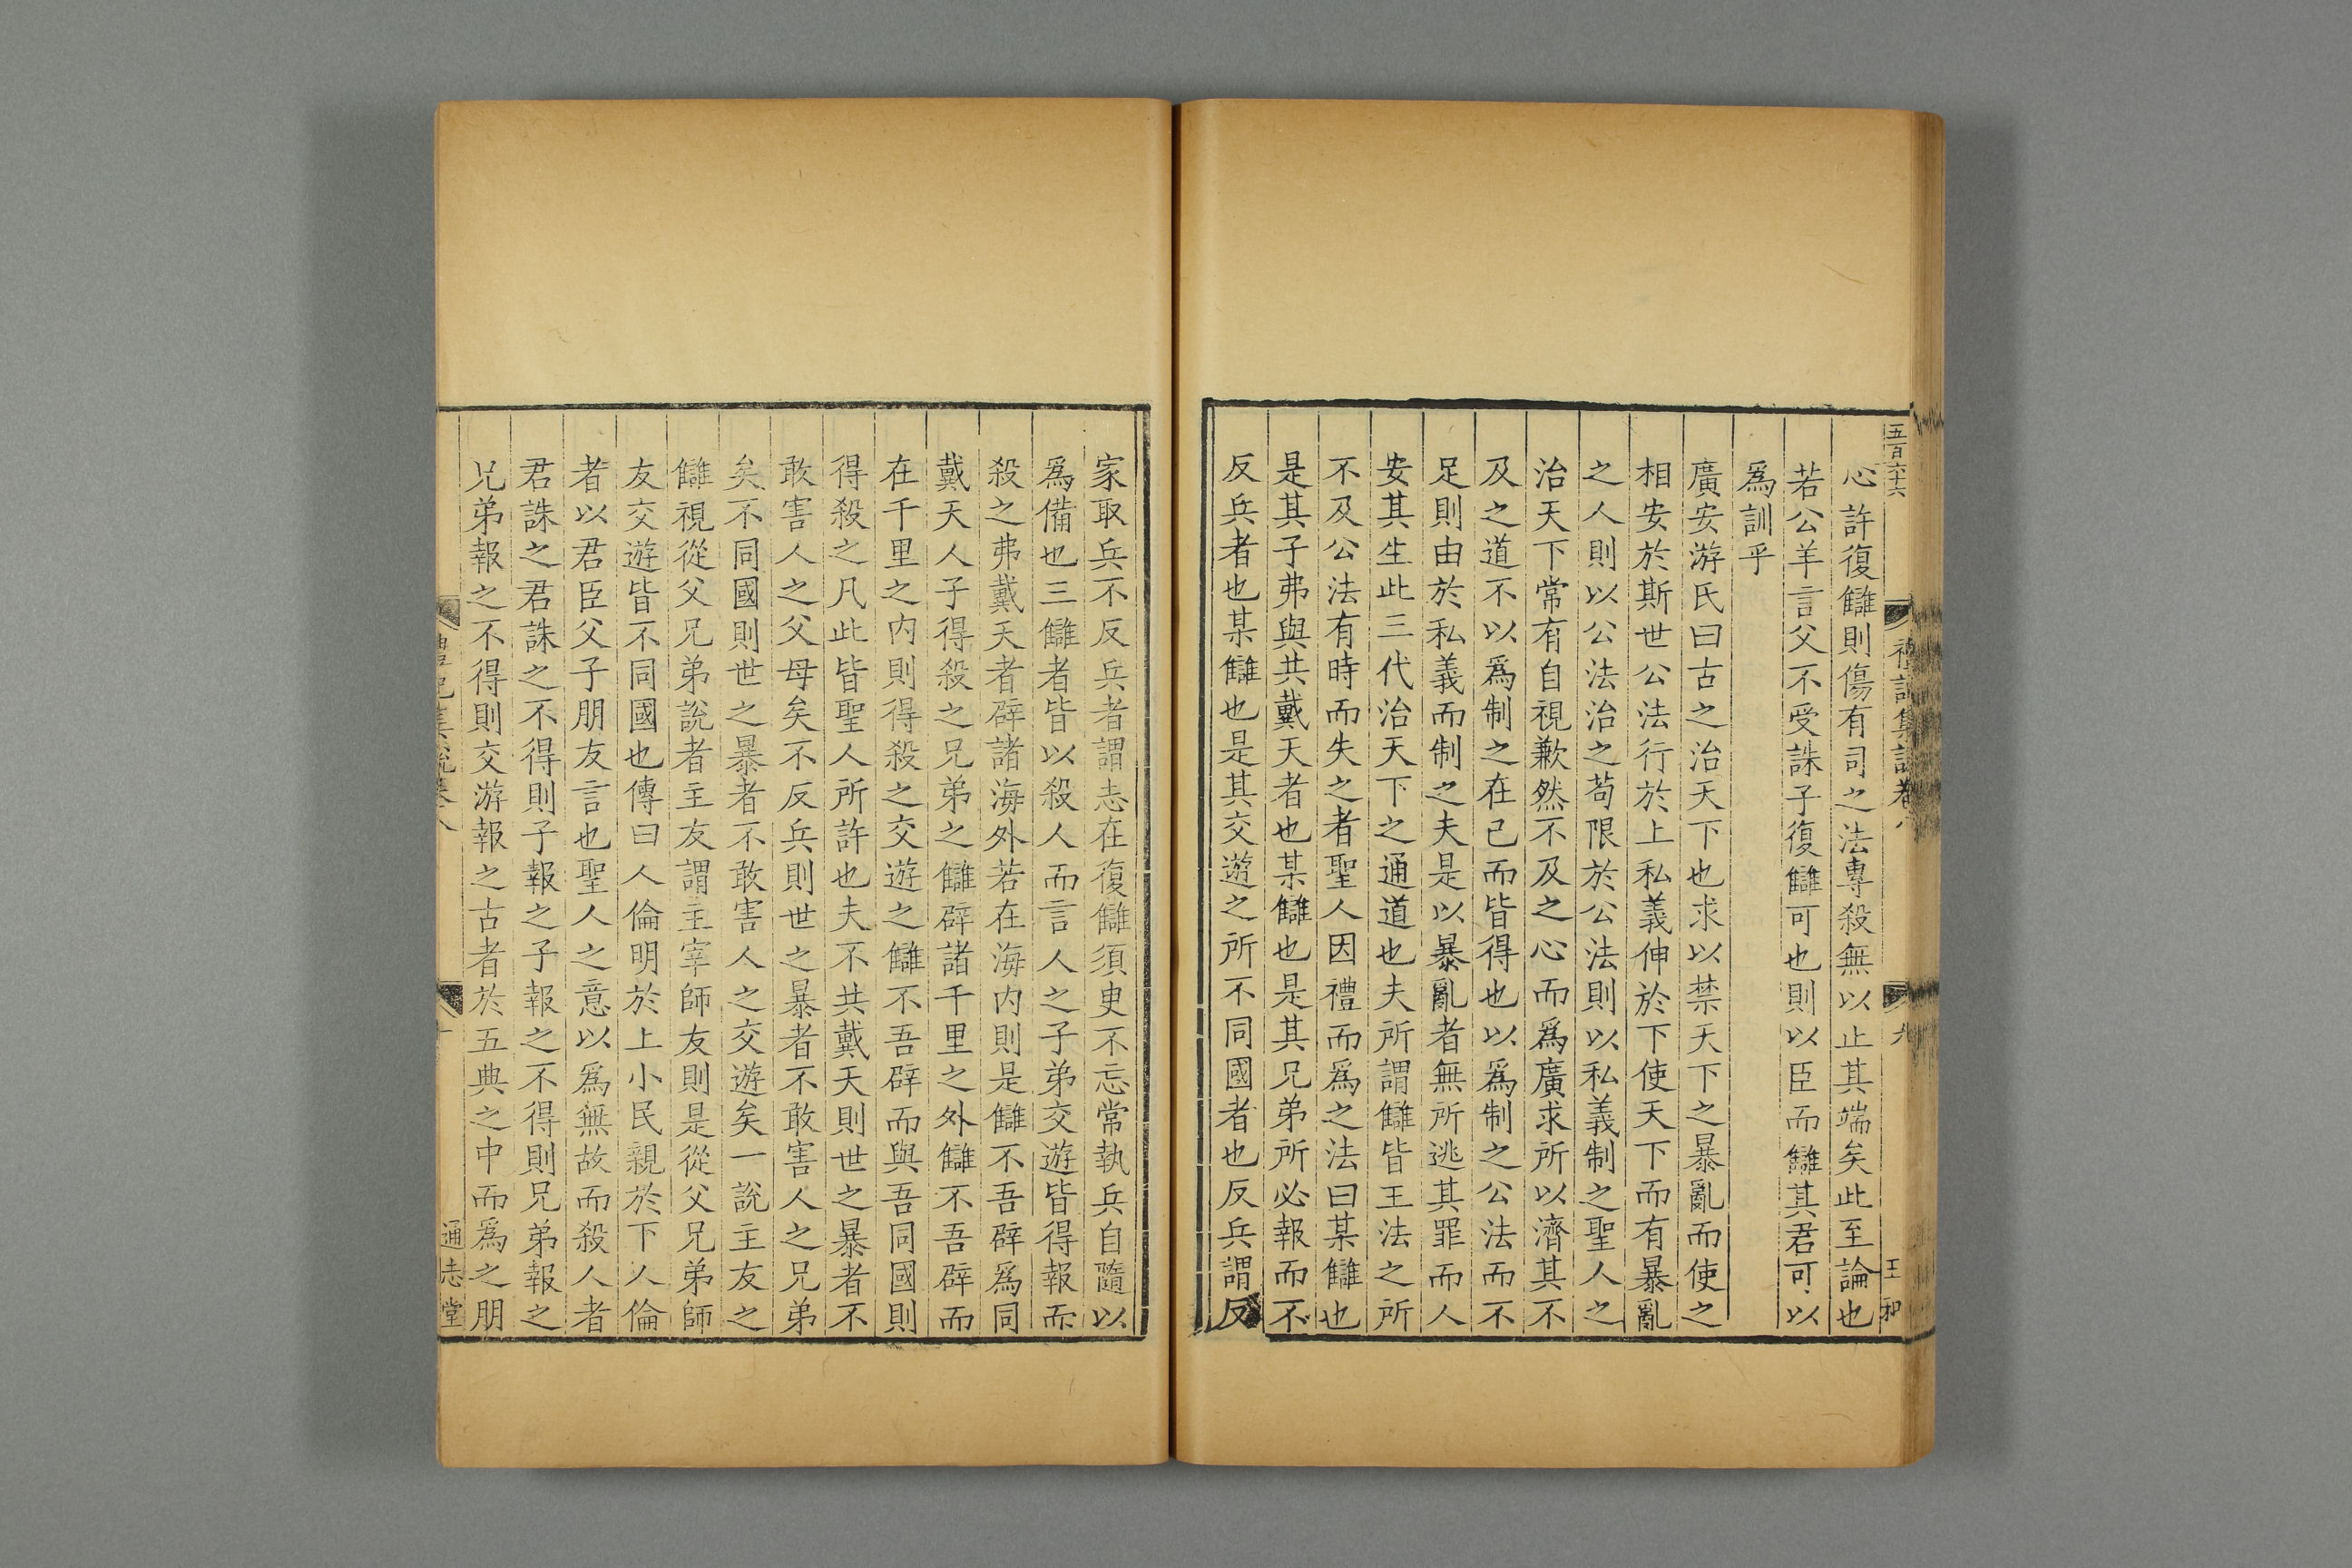 五百六十六
禮記集說卷八
九
王和
心許復讎則傷有司之法專殺無以止其端矣此至論也
若公羊言父不受誅子復讎可也則以臣而讎其君可以
爲訓乎
廣安游氏曰古之治天下也求以禁天下之暴亂而使之
相安於斯世公法行於上私義伸於下使天下而有暴亂
之人則以公法治之苟限於公法則以私義制之聖人之
治天下常有自視歉然不及之心而爲廣求所以濟其不
及之道不以爲制之在己而皆得也以爲制之公法而不
足則由於私義而制之夫是以暴亂者無所逃其罪而人
安其生此三代治天下之通道也夫所謂讎皆王法之所
不及公法有時而失之者聖人因禮而爲之法曰某讎也
是其子弗與共戴天者也某讎也是其兄弟所必報而不
反兵者也某讎也是其交遊之所不同國者也反兵謂反
家取兵不反兵者謂志在復讎須臾不忘常執兵自隨以
爲備也三讎者皆以殺人而言人之子弟交遊皆得報而
殺之弗戴天者辟諸海外若在海内則是讎不吾辟爲同
戴天人子得殺之兄弟之讎辟諸千里之外讎不吾辟而
在千里之内則得殺之交遊之讎不吾辟而與吾同國則
得殺之凡此皆聖人所許也夫不共戴天則世之暴者不
敢害人之父母矣不反兵則世之暴者不敢害人之兄弟
矣不同國則世之暴者不敢害人之交遊矣一說主友之
讎視從父兄弟說者主友謂主宰師友則是從父兄弟師
友交遊皆不同國也傳曰人倫明於上小民親於下人倫
者以君臣父子朋友言也聖人之意以爲無故而殺人者
君誅之君誅之不得則子報之子報之不得則兄弟報之
兄弟報之不得則交游報之古者於五典之中而爲之朋
禮記集說卷八
十
通志堂